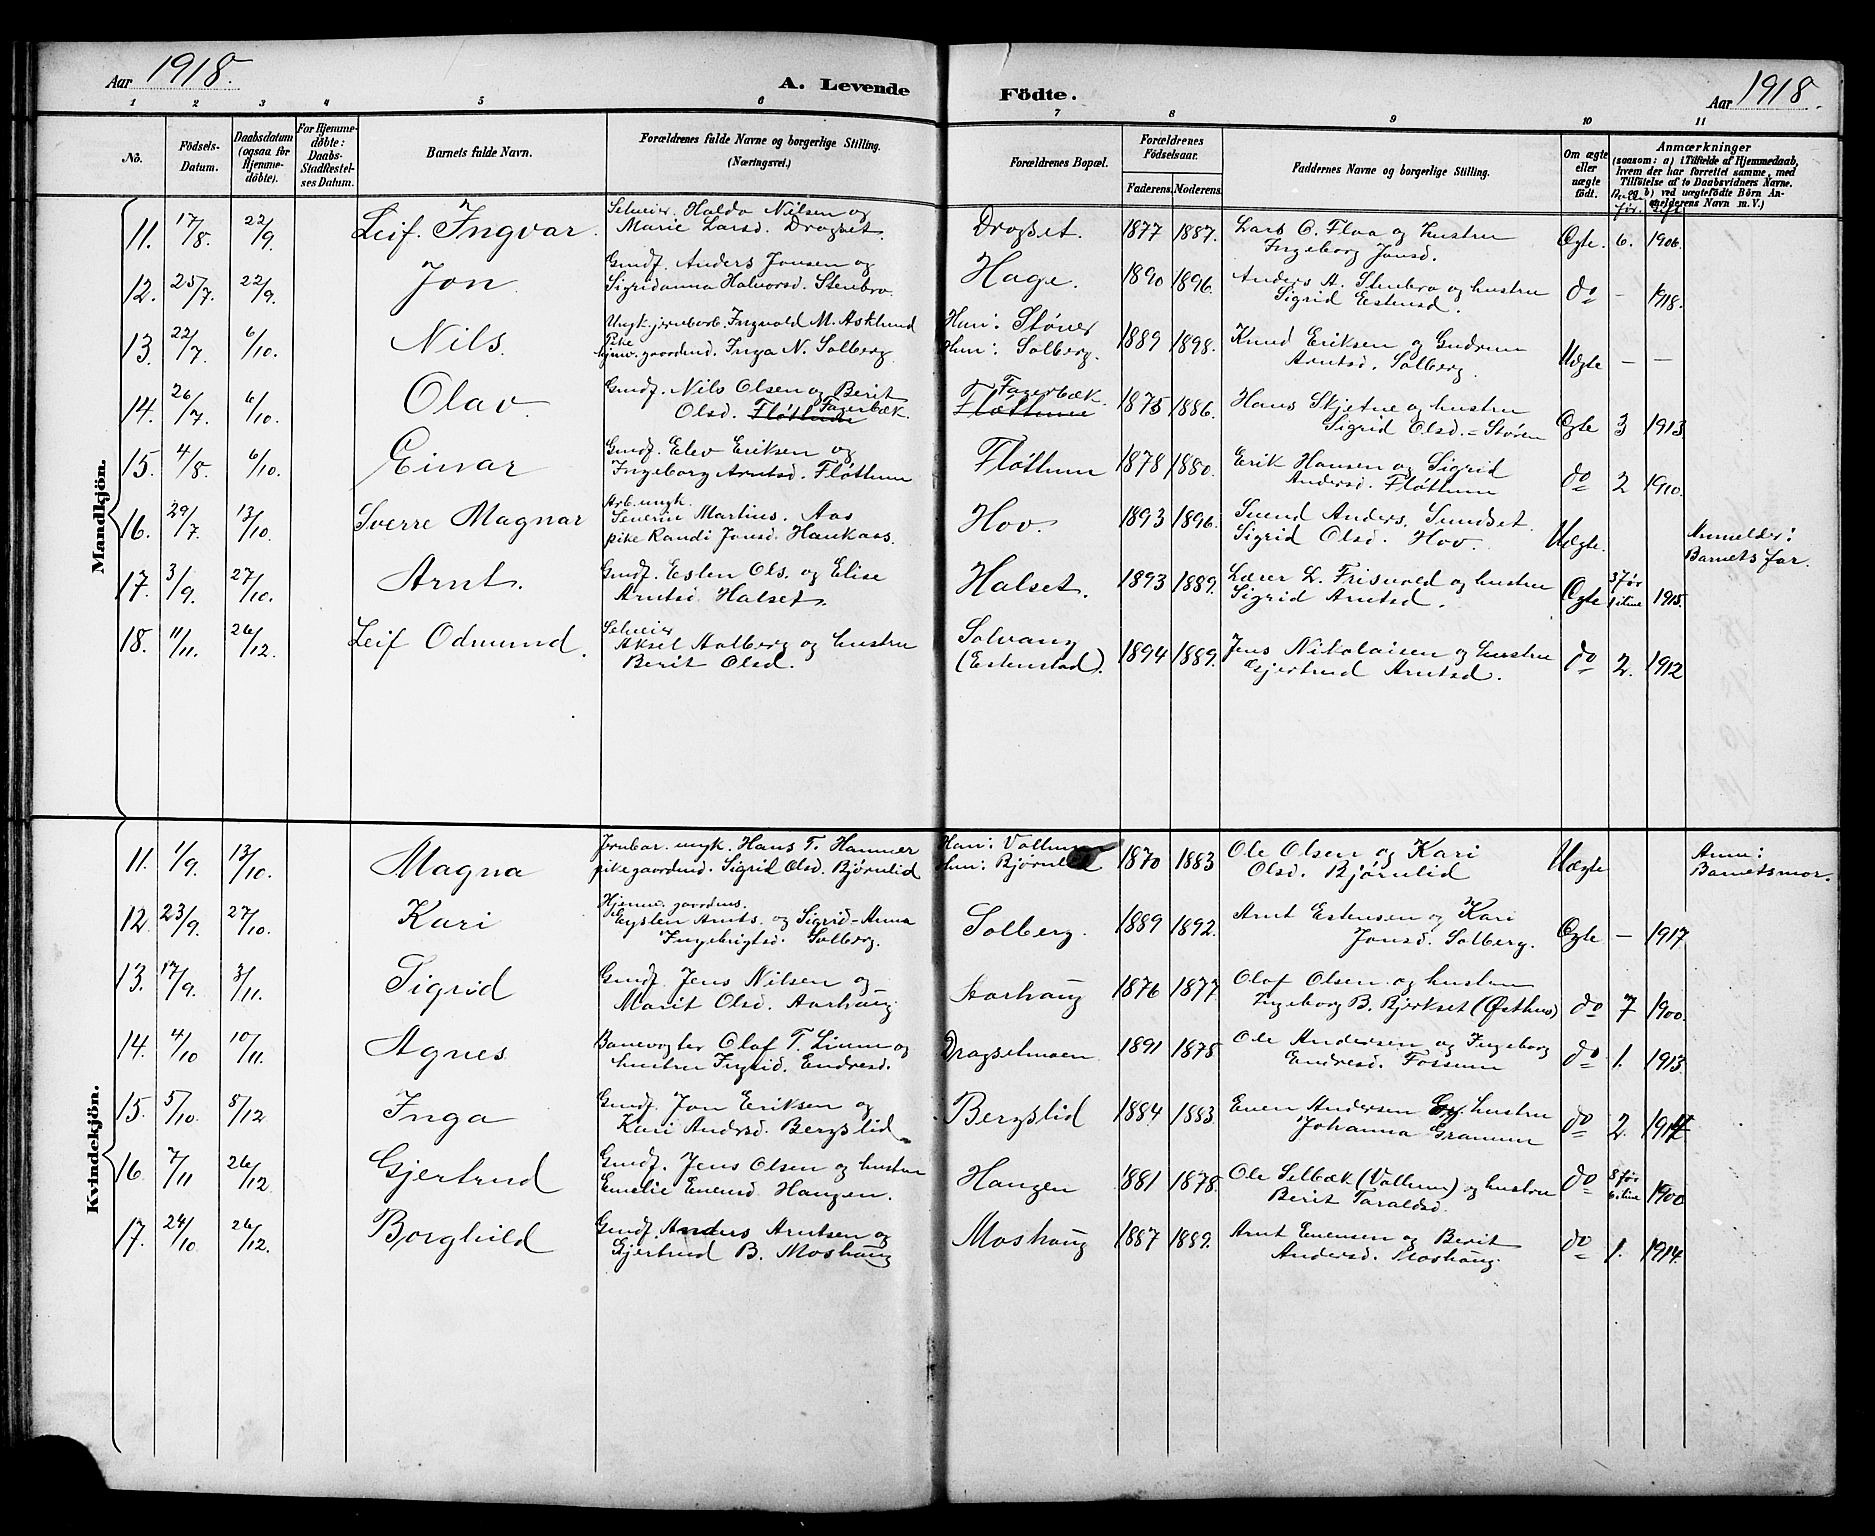 Aar 1918.
A. Levende Födte.
Aar 1918.
1 2 3 4 5 6 7 8 9 10 11
No.
Födsels-Datum.
Daabsdatum (ogsaa for Hjemme-döbte).
For Hjemme-döbte: Daabs-Stadfæstel-ses Datum.
Barnets fulde Navn.
Forældrenes fulde Navne og borgerlige Stilling. (Næringsvei.)
Forældrenes Bopæl.
Forældrenes Födselsaar.
Faderens. Moderens.
Faddernes Navne og borgerlige Stilling.
Om ægte eller uægte födt.
Anmærkninger
(saasom: a) i Tilfælde af Hjemmedaab, hvem der har forrettet samme, med Tilföielse af to Daabsvidners Navne. og b) ved uægtefödte Börn Anmelderens Navn m. V.)
Mandkjön.
11. 17/8. 22/9. Leif Ingvar. Selveier Haldo Nilsen og
Marie Larsd. Dragset. Dragset. 1877 1887. Lars O. Floa og hustru
Ingeborg Jonsd. Ægte. 6. 1906.
12. 25/7. 22/9. Jon Gmdf. Anders Jonsen og
Sigridanna Halvorsd. Stenbro. Hage. 1890 1896. Anders A. Stenbro og hustru
Sigrid Estensd. do – 1918.
13. 22/7. 6/10. Nils. Ungk. jernbarb. Ingvald M. Asklund
pike hjemv. gaardmd. Inga N. Solberg. Han: Støren
Hun: Solberg. 1889 1898. Knud Eriksen og Gudrun
Arntsd. Solberg. Uægte – –
14. 26/7. 6/10. Olav Gmdf. Nils Olsen og Berit
Olsd. Fløttum Fagerbæk. Fagerbæk.
Fløttum 1875 1886. Hans Skjetne og hustru
Sigrid Olsd. – Støren Ægte 3 1913
15. 4/8. 6/10. Einar Gmdf. Elev Eriksen og
Ingeborg Arntsd. Fløttum Fløttum 1878 1880. Erik Hansen og Sigrid
Andersd. Fløttum do 2 1910.
16. 29/7. 13/10. Sverre Magnar Arb. ungk.
Severin Martins. Aas
pike Randi Jonsd. Haukaas. Hov 1893 1896. Svend Anders. Sundset.
Sigrid Olsd. Hov. Uægte. Anmelder:
Barnets far.
17. 3/9. 27/10. Arnt. Gmdf. Esten Ols. og Elise
Arntsd. Halset. Halset. 1893 1889. Lærer L. Frisvold og hustru
Sigrid Arntsd. Ægte 3 før 1915.
18. 11/11. 26/12. Leif Odmund. Selveier
Aksel Aalberg og hustru
Berit Olsd. Solvang
(Estenstad). 1894 1889. Jens Nikolaisen og hustru
Gjertrud Arntsd. do 2. 1912
Kvindekjön.
11. 1/9. 13/10. Magna Jernbar. ungk. Hans T. Hammer
pike gaardmd. Sigrid Olsd. Bjørnlid Han: Vollum
Hun: Bjørnlid 1870 1883 Ole Olsen og Kari
Olsd. Bjørnlid Uægte Anm:
Barnets mor.
12. 23/9. 27/10. Kari Hjemv. gaardms.
Eysten Arnts. og Sigrid-Anna
Ingebrigtsd. Solberg. Solberg. 1889 1892. Arnt Estensen og Kari
Jonsd. Solberg. Ægte – 1917
13. 17/9. 3/11. Sigrid Gmdf. Jens Nilsen og
Marit Olsd. Aarhaug Aarhaug 1876 1877 Olaf Olsen og hustru
Ingeborg B. Bjerkset (Østhus) do 7 1900.
14. 4/10 10/11. Agnes Banevogter Olaf T. Lium og
hustru Ingrid Endresd. Dragsetmoen 1891 1875 Ole Andersen og Ingeborg
Endresd. Fossum do 1. 1913.
15. 5/10. 8/12 Inga Gmdf. Jon Eriksen og
Kari Andersd. Bergslid. Bergslid 1884 1883 Even Andersen og hustru
Johanna Gramum do 2. 1914
16. 7/11 26/12 Gjertrud Gmdf. Jens Olsen og hustru
Emelie Evensd. Haugen. Haugen 1881 1878. Ole Selbæk (Vollum) og hustru
Berit Taraldsd. do 8 før 1900
17. 24/10 26/12. Borghild Gmdf. Anders Arntsen og
Gjertrud B. Moshaug Moshaug 1887 1889. Arnt Evensen og Berit
Andersd. Moshaug. do 1. 1914.